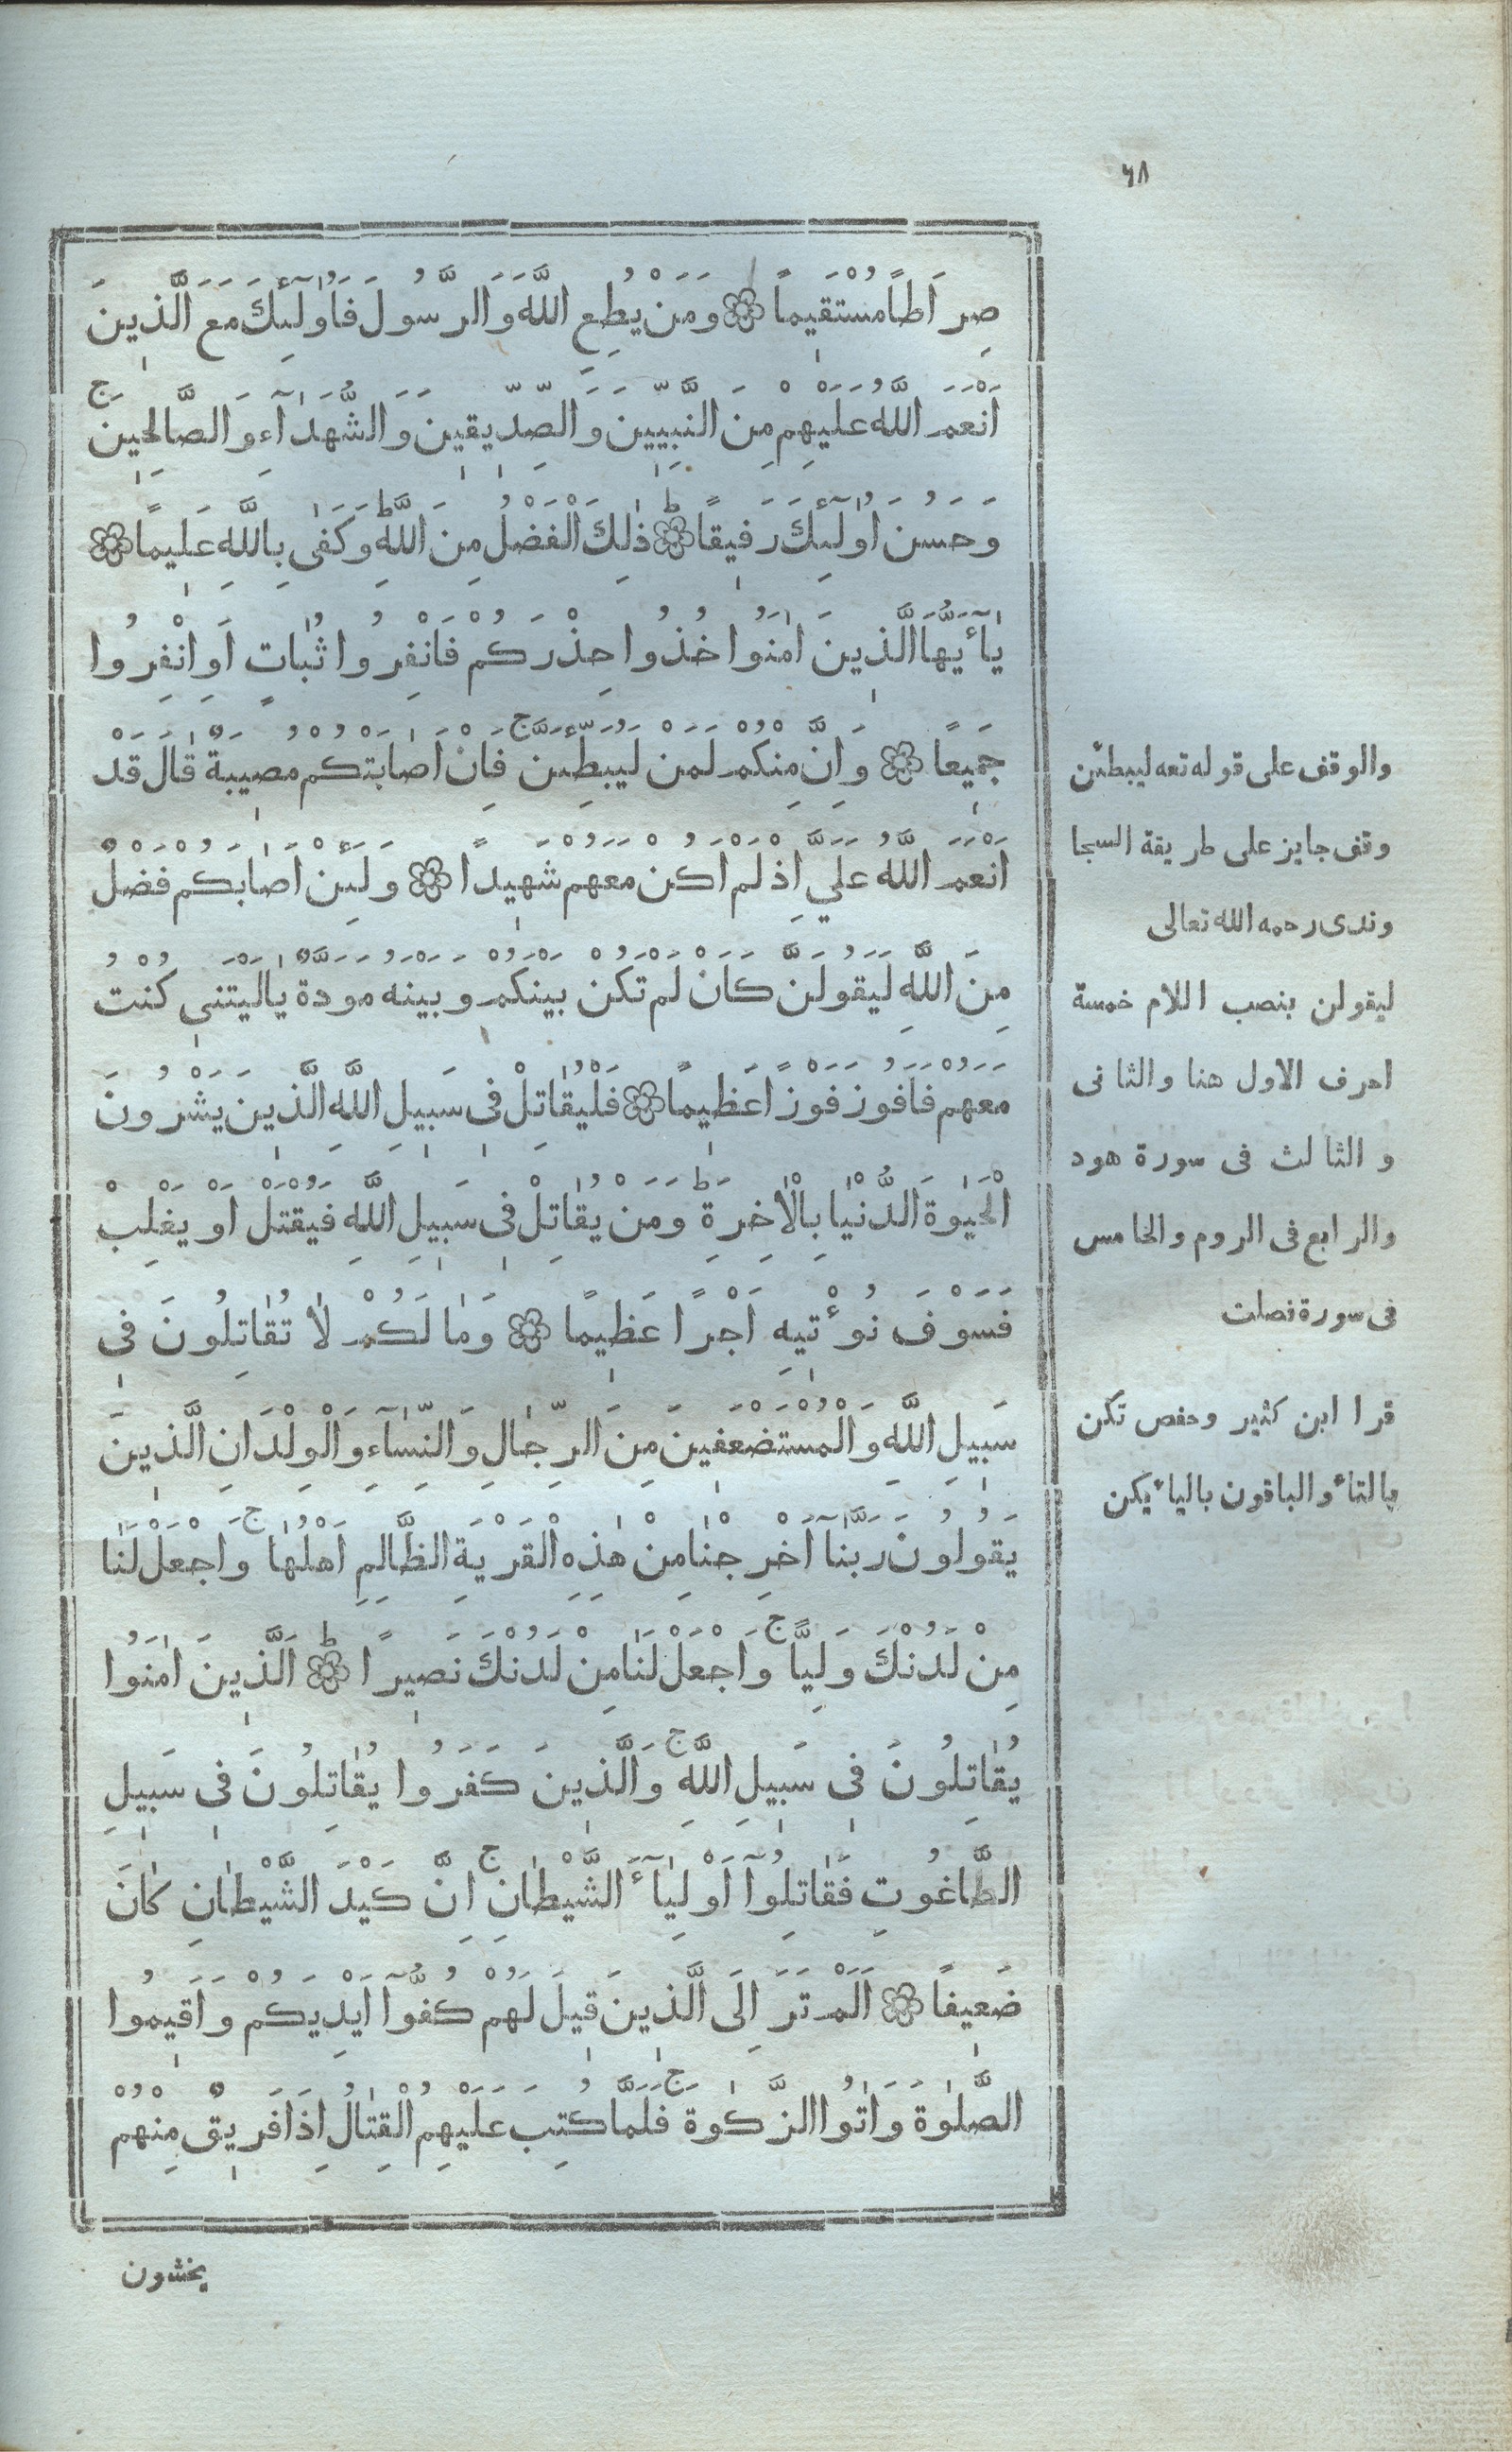 ٦٨
صِرَاطًا مُسْتَقِيمًا ۞ وَمَنْ يُطِعِ اللَّهَ وَالرَّسُولَ فَاُولٰٓئِكَ مَعَ الَّذِينَ
اَنْعَمَ اللَّهُ عَلَيْهِمْ مِنَ النَّبِيِّينَ وَالصِّدِّيقِينَ وَالشُّهَدَآءِ وَالصَّالِحِينَ ج
وَحَسُنَ اُولٰٓئِكَ رَفِيقًا ط ۞ ذٰلِكَ الْفَضْلُ مِنَ اللَّهِ ط وَكَفٰى بِاللَّهِ عَلِيمًا ۞
يَآءَيُّهَا الَّذِينَ اٰمَنُوا خُذُوا حِذْرَكُمْ فَانْفِرُوا ثُبَاتٍ اَوِ انْفِرُوا
جَمِيعًا ۞ وَاِنَّ مِنْكُمْ لَمَنْ لَيُبَطِّئَنَّ ج فَاِنْ اَصَابَتْكُمْ مُصِيبَةٌ قَالَ قَدْ
اَنْعَمَ اللَّهُ عَلَيَّ اِذْ لَمْ اَكُنْ مَعَهُمْ شَهِيدًا ۞ وَلَئِنْ اَصَابَكُمْ فَضْلٌ
مِنَ اللَّهِ لَيَقُولَنَّ كَاَنْ لَمْ تَكُنْ بَيْنَكُمْ وَبَيْنَهُ مَوَدَّةٌ يَالَيْتَنِى كُنْتُ
مَعَهُمْ فَاَفُوزَ فَوْزًا عَظِيمًا ۞ فَلْيُقَاتِلْ فِى سَبِيلِ اللَّهِ الَّذِينَ يَشْرُونَ
الْحَيٰوةَ الدُّنْيَا بِالْاٰخِرَةِ ط وَمَنْ يُقَاتِلْ فِى سَبِيلِ اللَّهِ فَيُقْتَلْ اَوْ يَغْلِبْ
فَسَوْفَ نُؤْتِيهِ اَجْرًا عَظِيمًا ۞ وَمَا لَكُمْ لَا تُقَاتِلُونَ فِى
سَبِيلِ اللَّهِ وَالْمُسْتَضْعَفِينَ مِنَ الرِّجَالِ وَالنِّسَآءِ وَالْوِلْدَانِ الَّذِينَ
يَقُولُونَ رَبَّنَآ اَخْرِجْنَا مِنْ هٰذِهِ الْقَرْيَةِ الظَّالِمِ اَهْلُهَا ج وَاجْعَلْ لَنَا
مِنْ لَدُنْكَ وَلِيًّا ج وَاجْعَلْ لَنَا مِنْ لَدُنْكَ نَصِيرًا ط ۞ اَلَّذِينَ اٰمَنُوا
يُقَاتِلُونَ فِى سَبِيلِ اللَّهِ ج وَالَّذِينَ كَفَرُوا يُقَاتِلُونَ فِى سَبِيلِ
الطَّاغُوتِ فَقَاتِلُوآ اَوْلِيَآءَ الشَّيْطَانِ ج اِنَّ كَيْدَ الشَّيْطَانِ كَانَ
ضَعِيفًا ۞ اَلَمْ تَرَ اِلَى الَّذِينَ قِيلَ لَهُمْ كُفُّوآ اَيْدِيَكُمْ وَاَقِيمُوا
الصَّلٰوةَ وَاٰتُوا الزَّكٰوةَ ج فَلَمَّا كُتِبَ عَلَيْهِمُ الْقِتَالُ اِذَا فَرِيقٌ مِنْهُمْ
يخشون
والوقف على قوله تعه ليبطئن
وقف جايز على طريقة السجا
وندى رحمه الله تعالى
ليقولن بنصب اللام خمسة
احرف الاول هنا والثانى
والثالث فى سورة هود
والرابع فى الروم والخامس
فى سورة فصلت
قرا ابن كثير وحفص تكن
بالتاء والباقون بالياء يكن